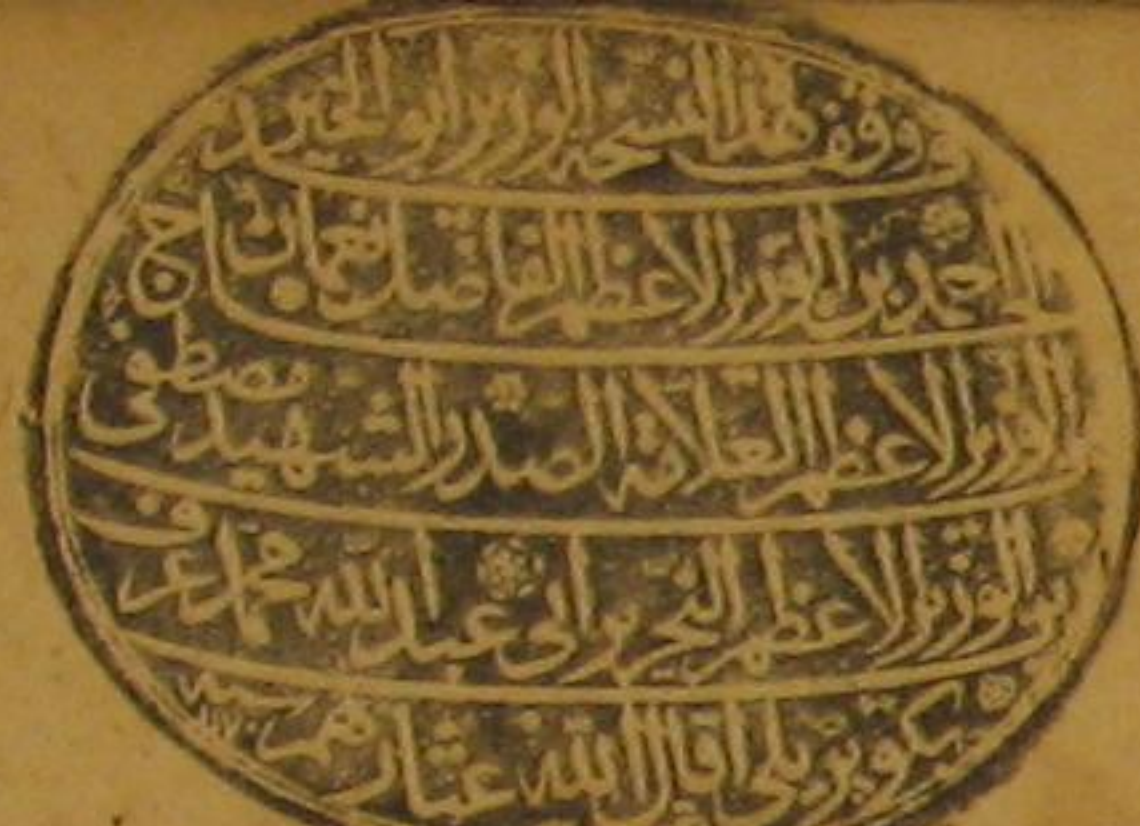 و وقف هذا النسخة الوزير ابو الخير
الحاج احمد بن الوزير الاعظم الفاضل نعمان بن
الوزير الاعظم العلامة الصدر الشهيد مصطفى
بن الوزير الاعظم النحرير ابى عبد الله محمد عرف
بكوپريلى اقال الله عثارهم